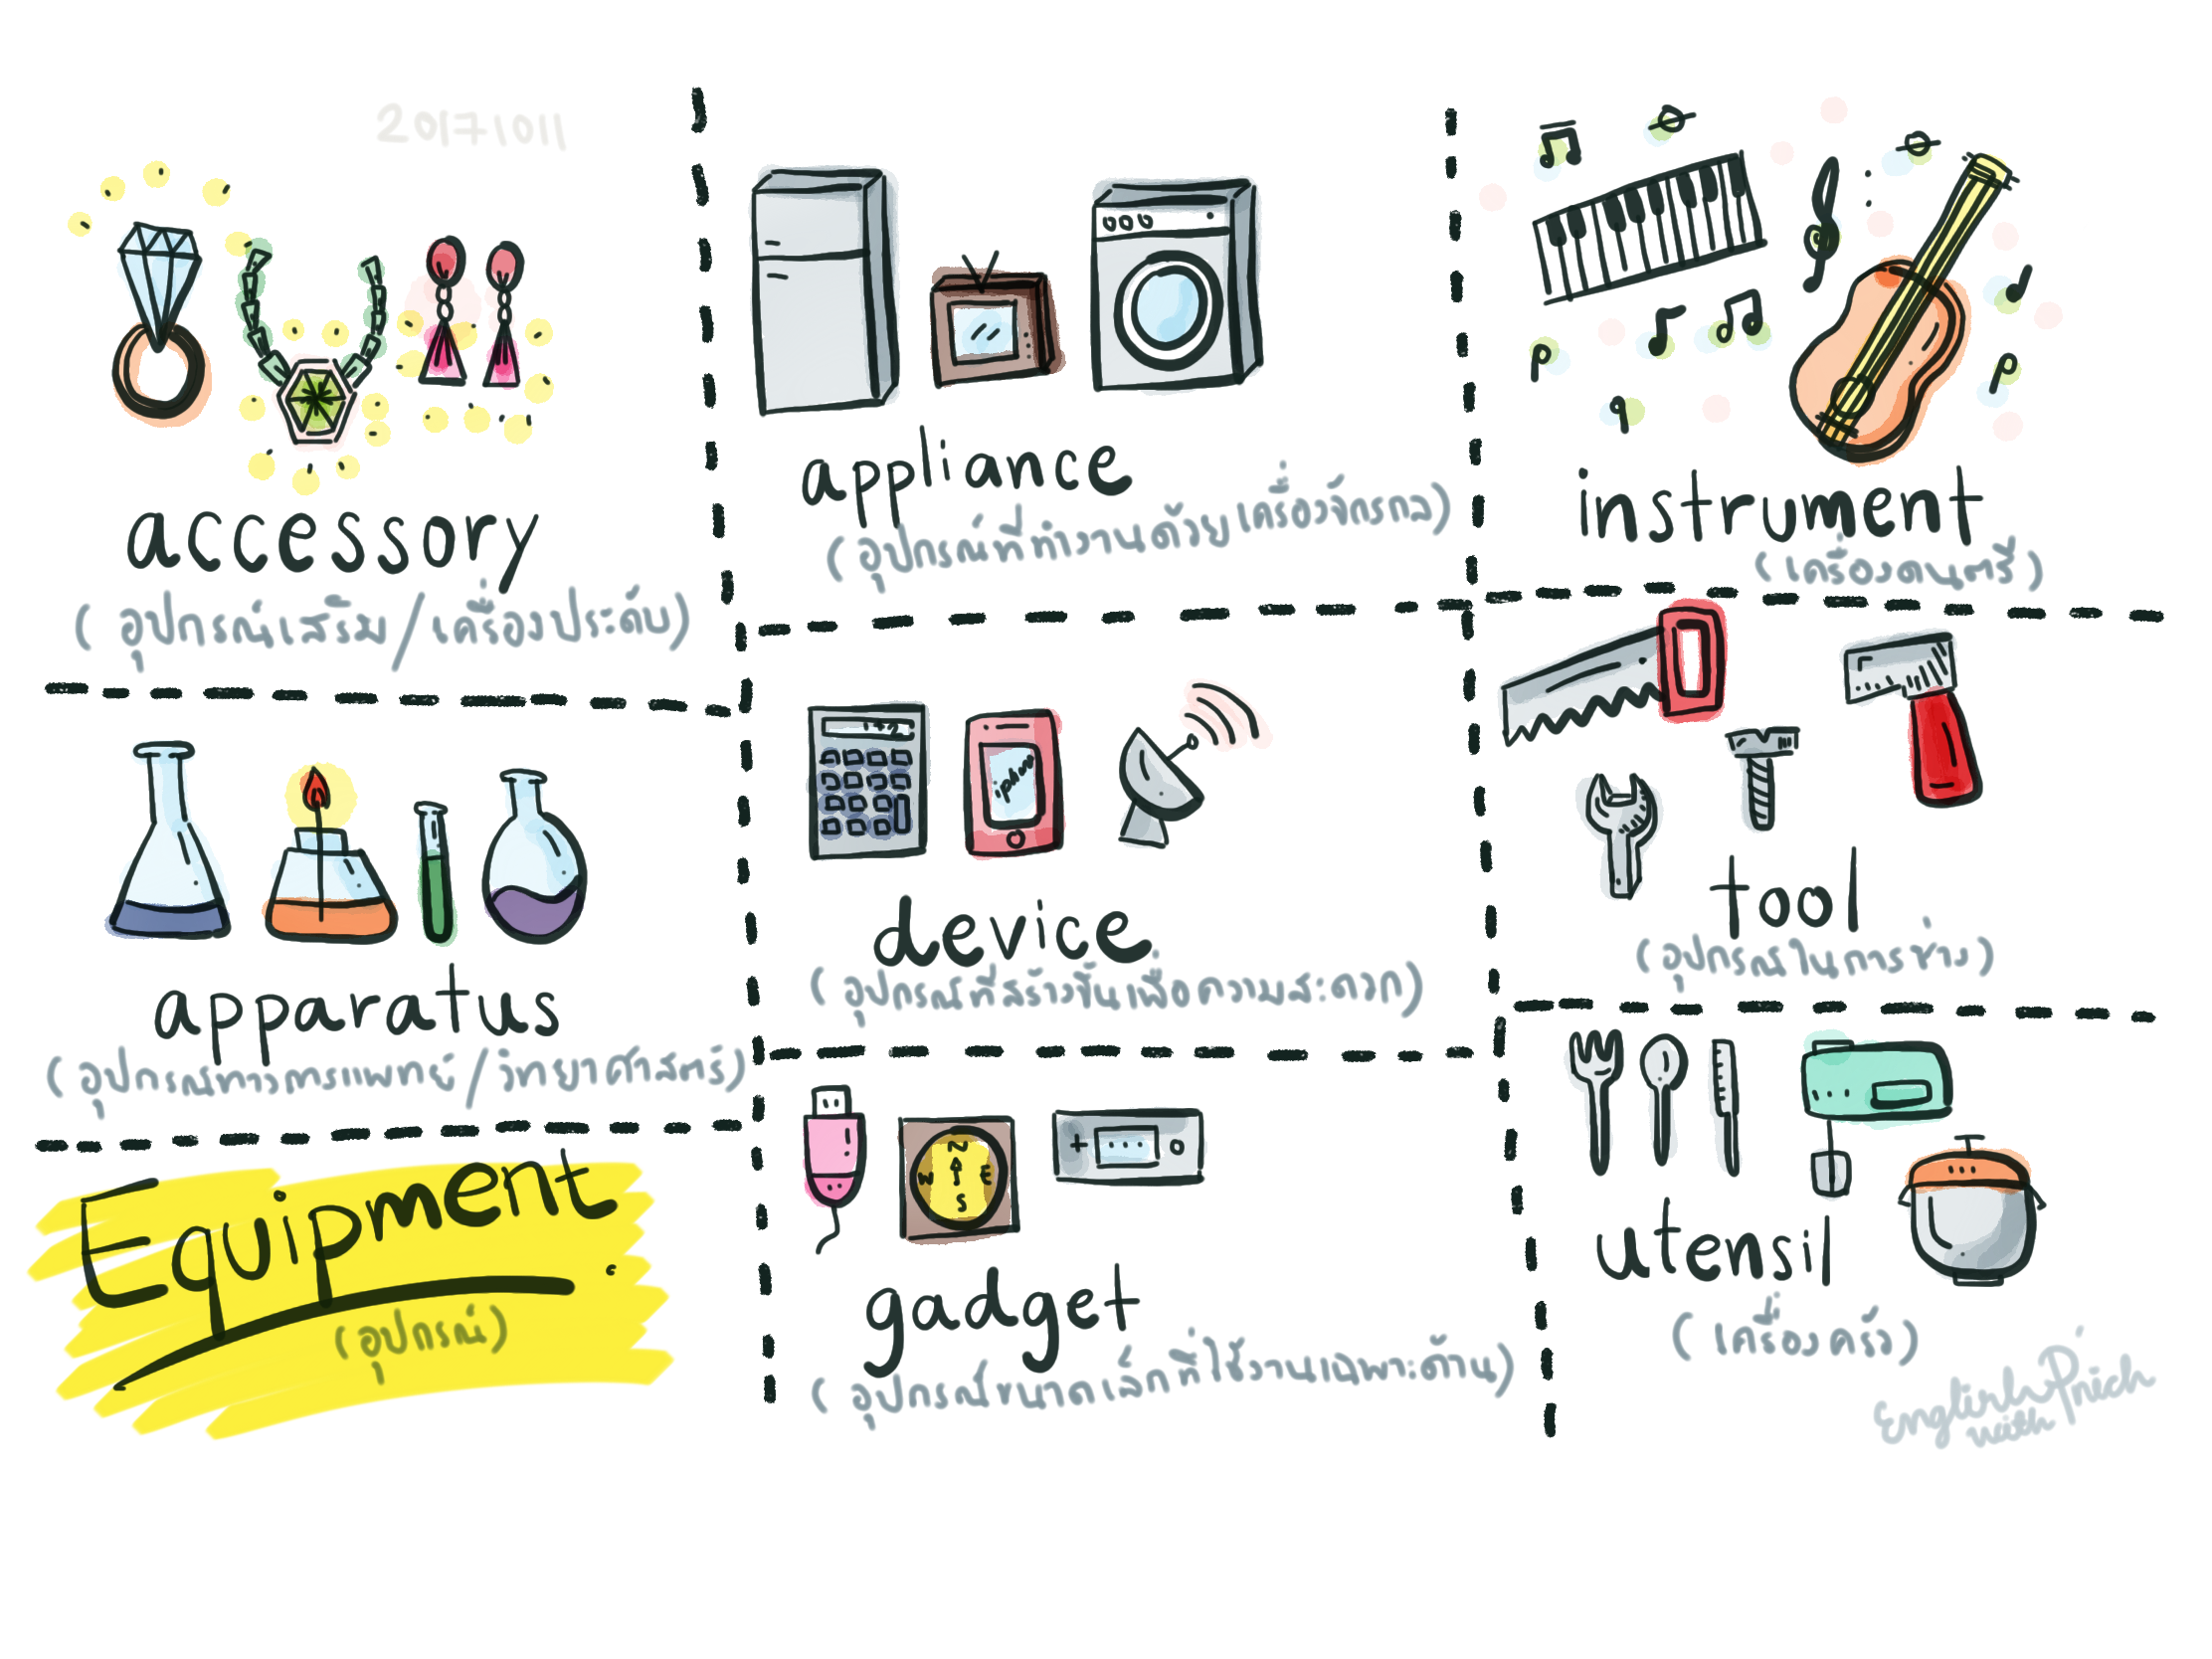 20171011
accessory
(อุปกรณ์เสริม/เครื่องประดับ)
appliance
(อุปกรณ์ที่ทำงานด้วยเครื่องจักรกล)
instrument
(เครื่องดนตรี)
apparatus
(อุปกรณ์ทางการแพทย์/วิทยาศาสตร์)
1+2
iphone
device
(อุปกรณ์ที่สร้างขึ้นเพื่อความสะดวก)
tool
(อุปกรณ์ในการช่าง)
Equipment
(อุปกรณ์)
N
W E
S
gadget
(อุปกรณ์ขนาดเล็กที่ใช้งานเฉพาะด้าน)
utensil
(เครื่องครัว)
English with Prich